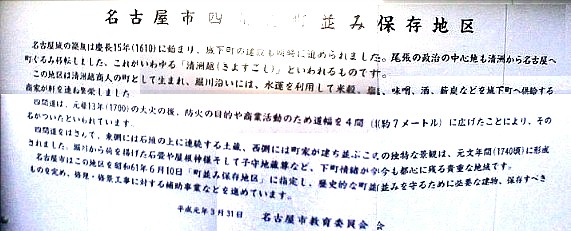 名古屋市四 町並み保存地区
名古屋城の築城は慶長15年(1610)に始まり、城下町の建設も同時に進められました。尾張の政治の中心地も清洲から名古屋へ
町ぐるみ移転しました。これがいわゆる「清洲越(きよすごし)」といわれるものです。
この地区は清洲越商人の町として生まれ、堀川沿いには、水運を利用して米穀、塩、味噌、酒、薪炭などを城下町へ供給する
商家が軒を連ね繁栄しました
四間道は、元禄13年(1700)の大火の後、防火の目的や商業活動のため道幅を4間(約7メートル)に広げたことにより、その
名がついたといわれています。
四間道をはさんで、東側には石垣の上に連続する土蔵、西側には町家が建ち並ぶこの独特な景観は、元文年間(1740頃)に形成
されました。堀川から荷を揚げた石畳や屋根神様そして子守地蔵尊など、下町情緒が今も都心に残る貴重な地域です。
名古屋市はこの地区を昭和61年6月10日「町並み保存地区」に指定し、歴史的な町並みを守るために必要な建物、保存すべき
ものを定め、修理・修景工事に対する補助事業などを進めています。
平成元年3月31日 名古屋市教育委員会